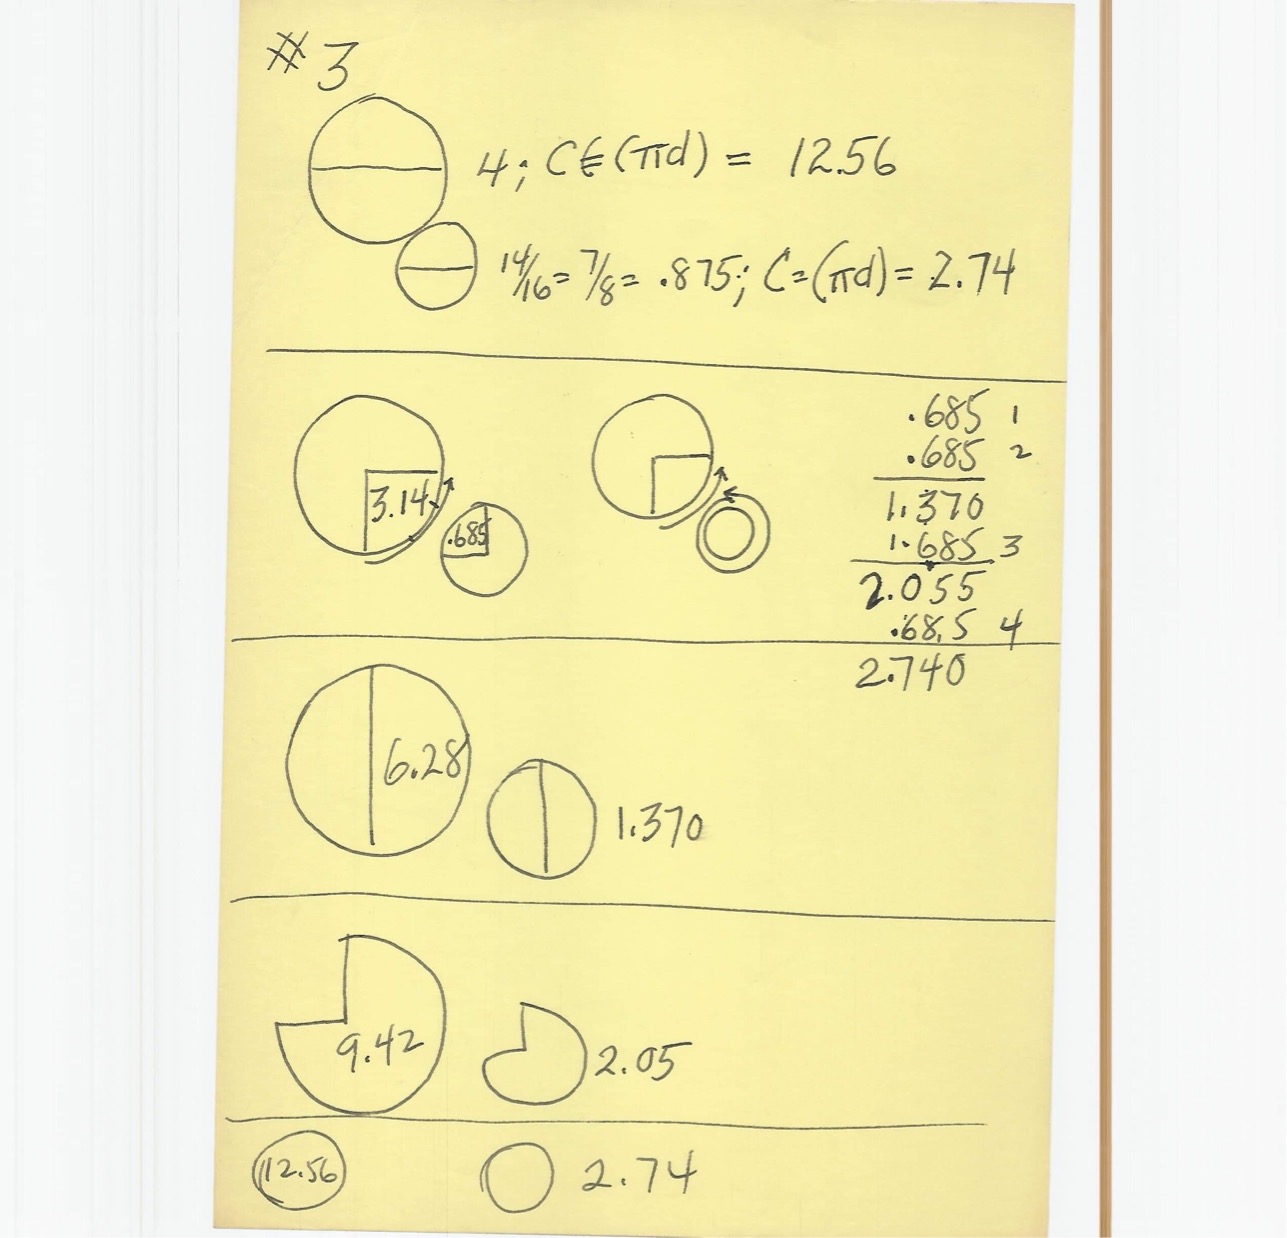 #3
4; C∈(πd) = 12.56
14/16 = 7/8 = .875; C=(πd) = 2.74
3.14
.685
.685 1
.685 2
1.370
1.685 3
2.055
.685 4
2.740
6.28
1.370
9.42
2.05
12.56
2.74